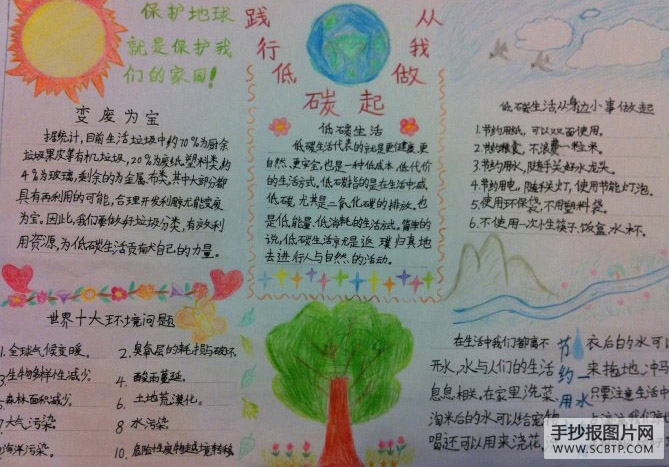 保护地球
就是保护我
们的家园!
践行低碳
从我做起
变废为宝
据统计,目前生活垃圾中约70%为厨余
垃圾果皮等有机垃圾,20%废纸塑料类,约
4%为玻璃,剩余的为金属、布类,其中大部分都
具有再利用的可能,合理开发利用就能变废
为宝。因此,我们要做好垃圾分类,有效利
用资源,为低碳生活贡献自己的力量。
低碳生活
低碳生活代表的就是更健康、更
自然、更安全,也是一种低成本、低代价
的生活方式。低碳指的是在生活中减
低碳,尤其是二氧化碳的排放。也
是低能量、低消耗的生活方式。简单的
说,低碳生活就是返璞归真地
去进行人与自然的活动。
低碳生活从身边小事做起
1.节约用纸,可以双面使用。
2.节约粮食,不浪费一粒米。
3.节约用水,随手关好水龙头。
4.节约用电,随手关灯,使用节能灯泡。
5.使用环保袋,不用塑料袋。
6.不使用一次性筷子、饭盒、水杯。
世界十大环境问题
1.全球气候变暖。
2.臭氧层的耗损与破坏。
3.生物多样性减少。
4.酸雨蔓延。
5.森林面积减少。
6.土地荒漠化。
7大气污染。
8水污染。
9海洋污染。
10.危险性废物越境转移
节约用水
在生活中我们都离不
开水,水与人们的生活
息息相关,在家里洗菜、
淘米后的水可以给宠物
喝还可以用来浇花,
衣后的水可以
来拖地,冲马
只要注意生活中
手抄报图片网
WWW.SCBTP.COM